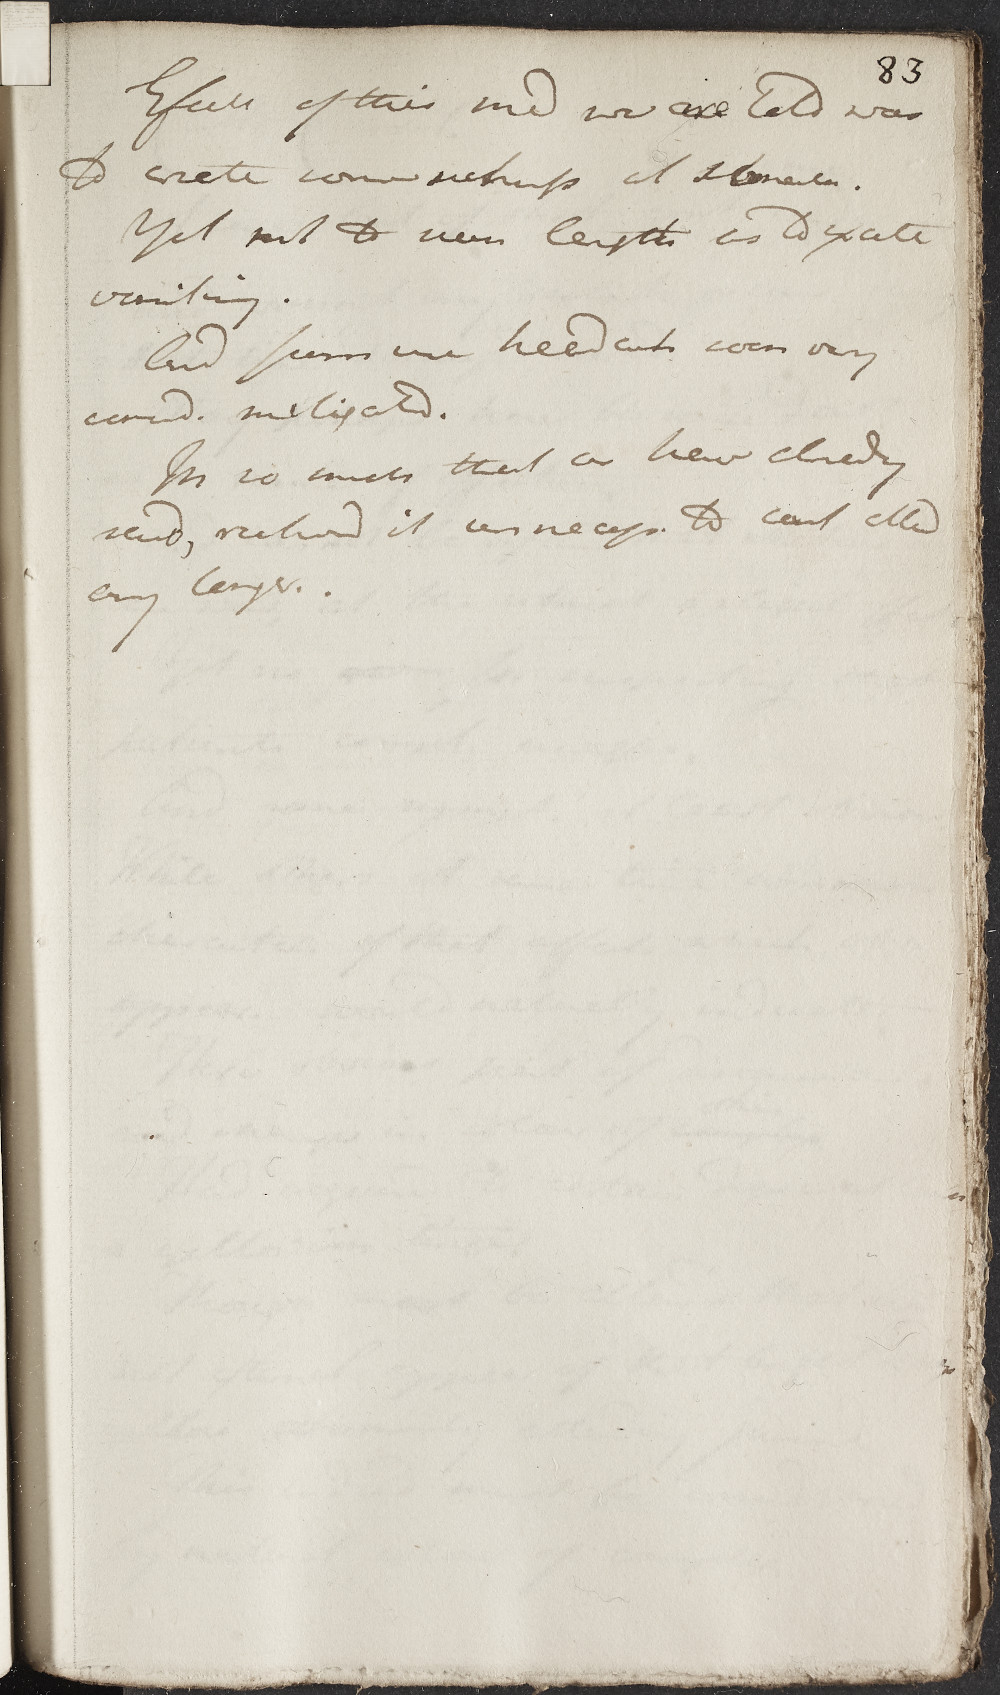 83
Effect of this med we are told was
to create some uneasiness at stomach.
Yet not to such length as to excite
vomiting.
And from use headach was very
consid. mitigated.
In so much that as have already
said, reckond it unnecess. to cont alled
any longer.